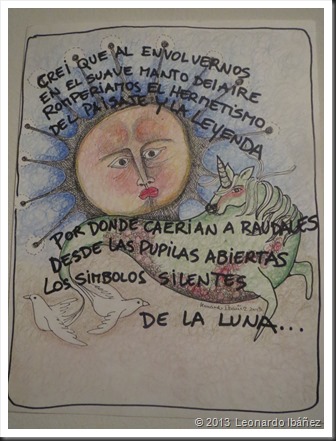 CREI QUE AL ENVOLVERNOS
EN EL SUAVE MANTO DEL AIRE
ROMPERIAMOS EL HERMETISMO
DEL PAISAJE Y LA LEYENDA
POR DONDE CAERIAN A RAUDALES
DESDE LAS PUPILAS ABIERTAS
LOS SIMBOLOS SILENTES
DE LA LUNA...
© 2013 Leonardo Ibáñez